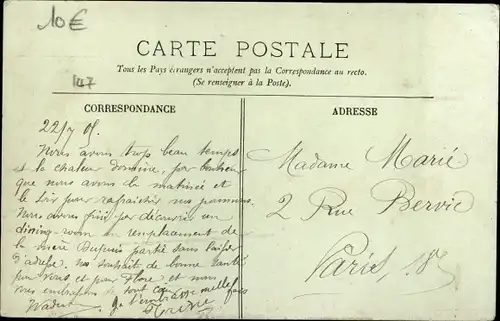 10€
147
CARTE POSTALE
Tous les Pays étrangers n'acceptent pas la Correspondance au recto.
(Se renseigner à la Poste).
CORRESPONDANCE
ADRESSE
Nous avons trop beau temps
et la chaleur domine, par bonheur
que nous avons la matinée et
le soir pour rafraichir nos poumons.
Nous avons fini par découvrir un
dining-room en remplacement de
la mère Dupuis partie sans laisser
d'adresse. nos souhaits de bonne santé
pour vous et pour Flore, et nous
vous embrassons de tout cœur
Je t'embrasse mille fois
Madame Marié
2 Rue Bervic
Paris, 18